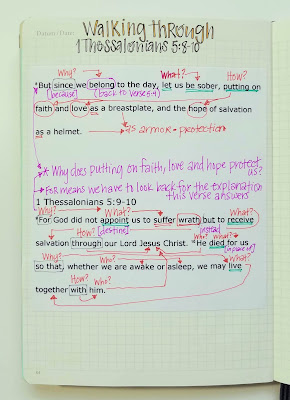 Datum / Date:
Walking through
1 Thessalonians 5:8-10
Why? What? How?
8But since we belong to the day, let us be sober, putting on
(because) (back to verse 5-7)
faith and love as a breastplate, and the hope of salvation
as a helmet. as armor - protection
* Why does putting on faith, love and hope protect us?
* For means we have to look back for the explanation
this verse answers
1 Thessalonians 5:9-10
Why? What? What?
9For God did not appoint us to suffer wrath but to receive
How? [destine] instead Who? What?
salvation through our Lord Jesus Christ. 10He died for us
Why? Who? What?
so that, whether we are awake or asleep, we may live
How? Who?
together with him.